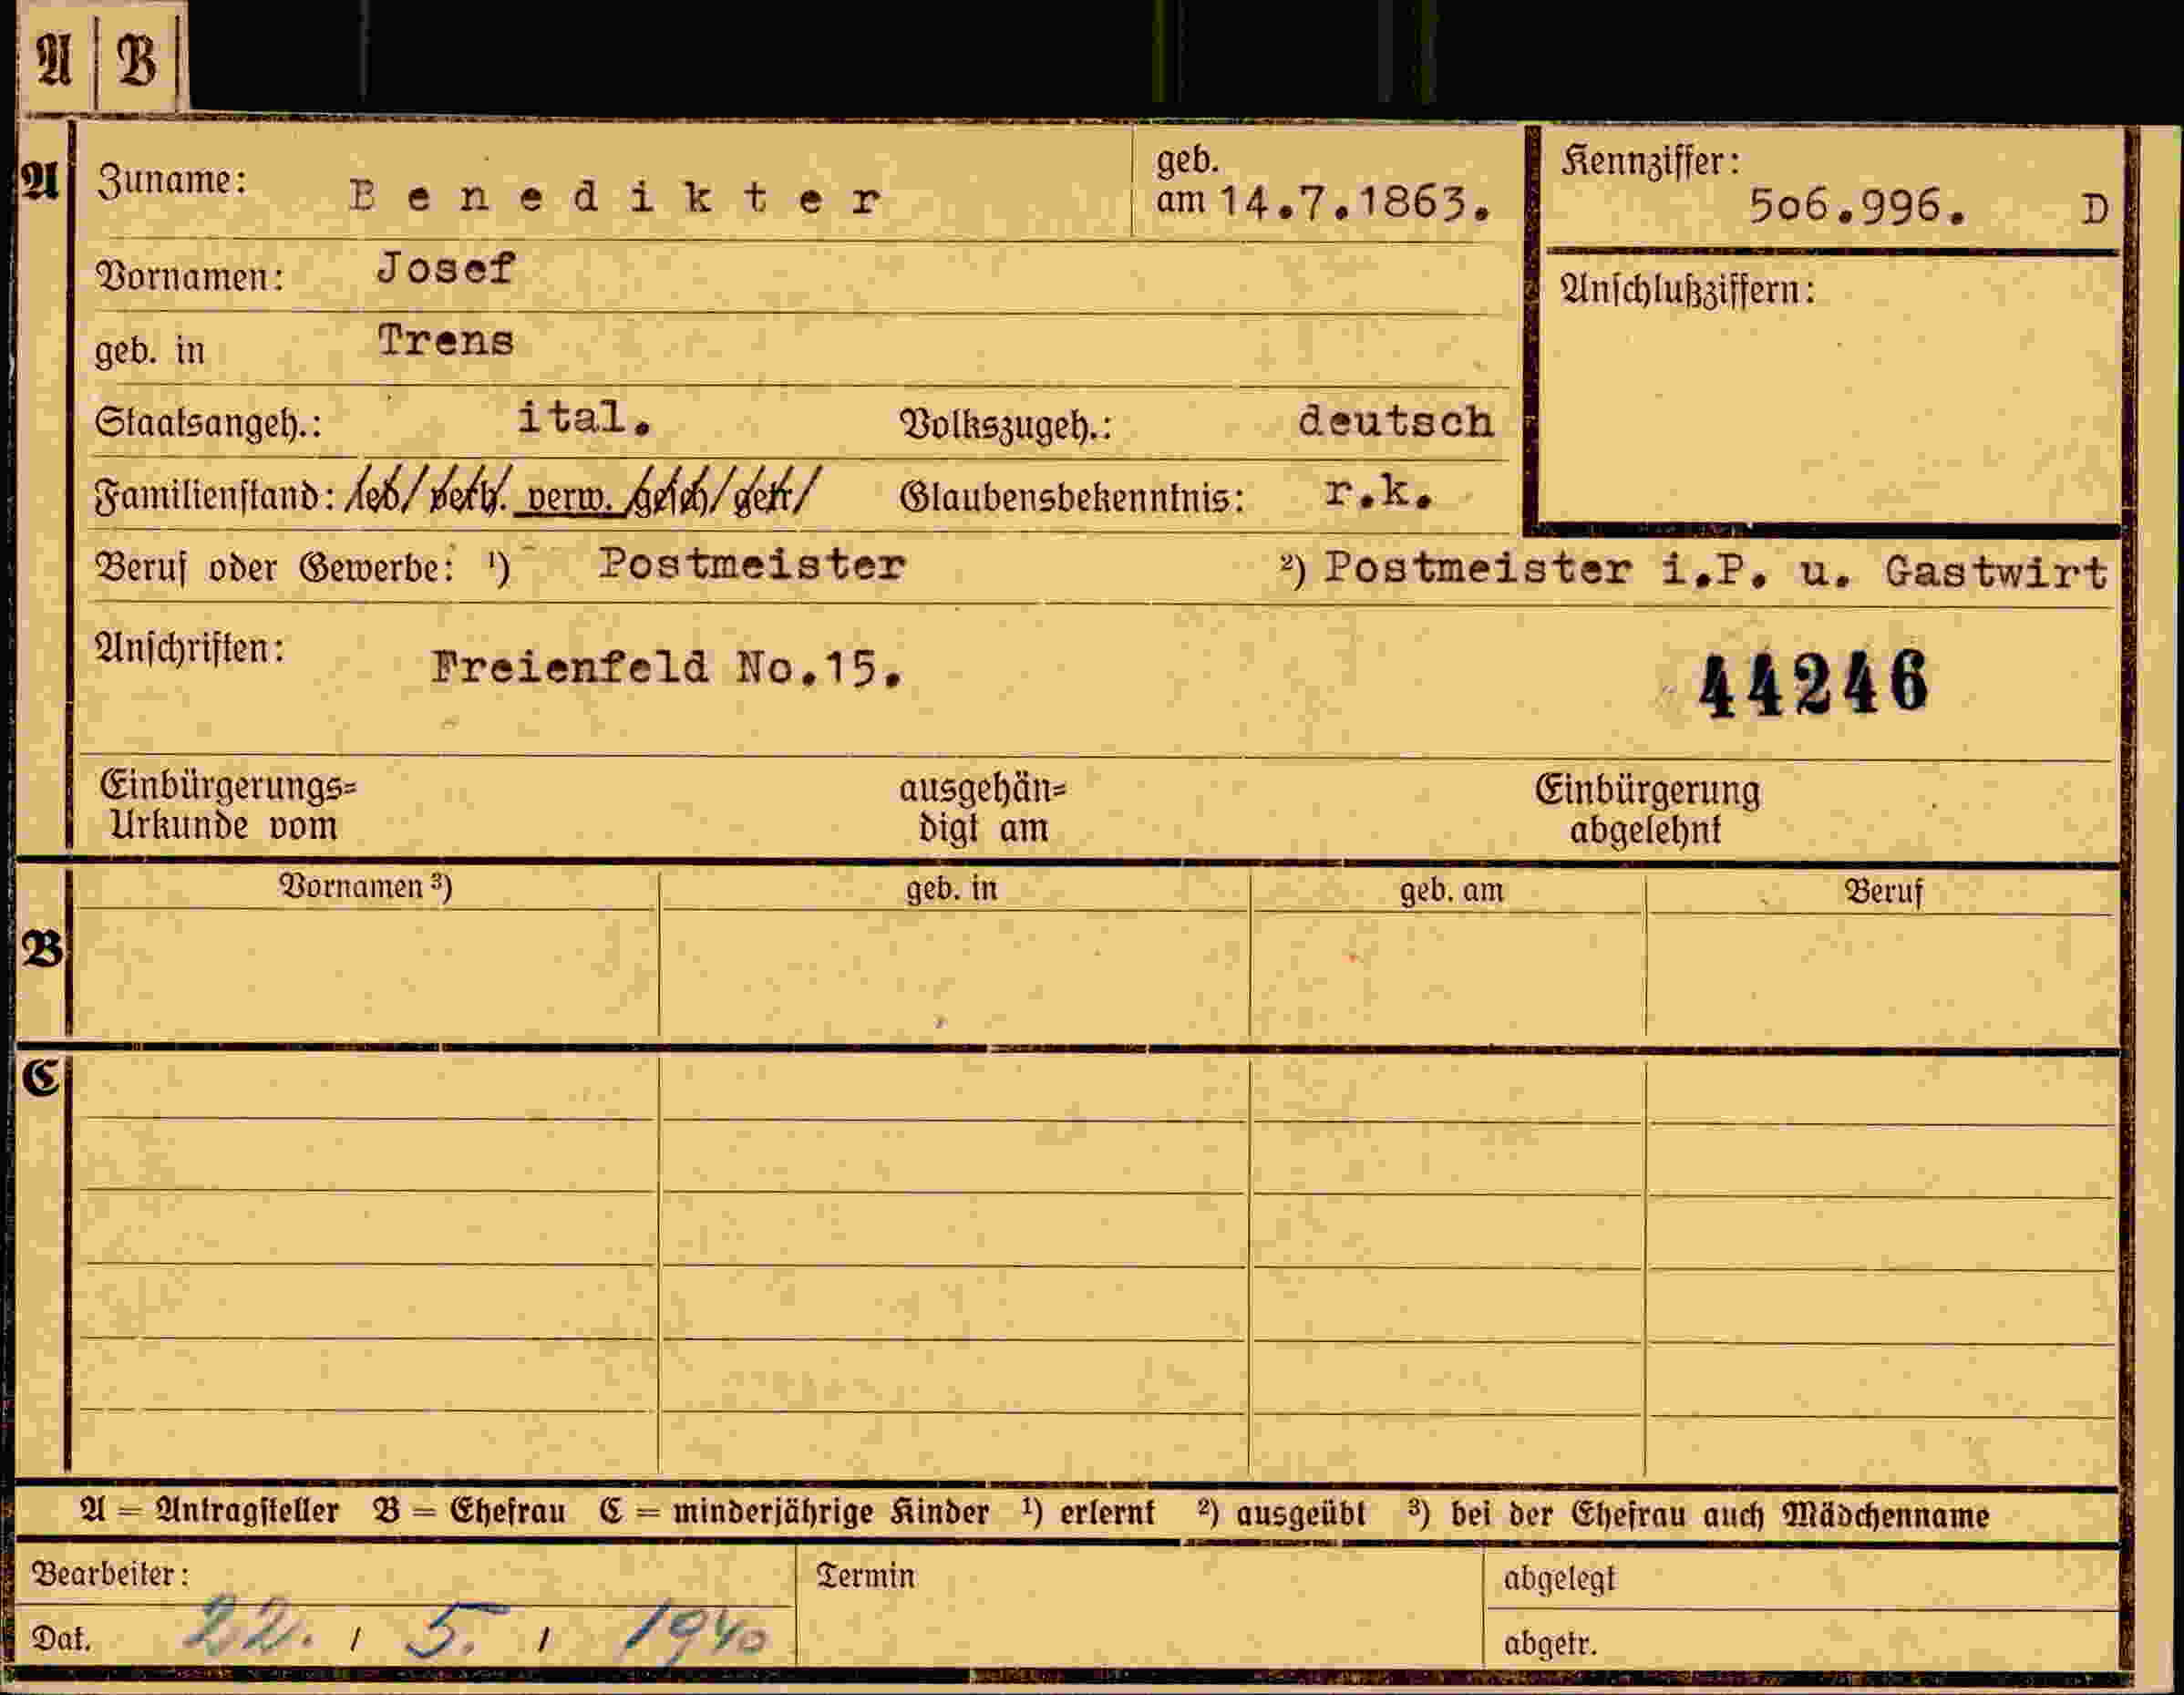 A B
A Zuname: Benedikter geb. am 14.7.1863. Kennziffer: 506.996. D
Vornamen: Josef Anschlußziffern:
geb. in Trens
Staatsangeh.: ital. Volkszugeh.: deutsch
Familienstand: led/ verh. verw. gesch/ getr/ Glaubensbekenntnis: r.k.
Beruf oder Gewerbe: ¹) Postmeister ²) Postmeister i.P. u. Gastwirt
Anschriften: Freienfeld No.15. 44246
Einbürgerungs= ausgehän= Einbürgerung
Urkunde vom digt am abgelehnt
B Vornamen ³) geb. in geb. am Beruf
C
A = Antragsteller B = Ehefrau C = minderjährige Kinder ¹) erlernt ²) ausgeübt ³) bei der Ehefrau auch Mädchenname
Bearbeiter: Termin abgelegt
Dat. 22. / 5. / 1940 abgetr.